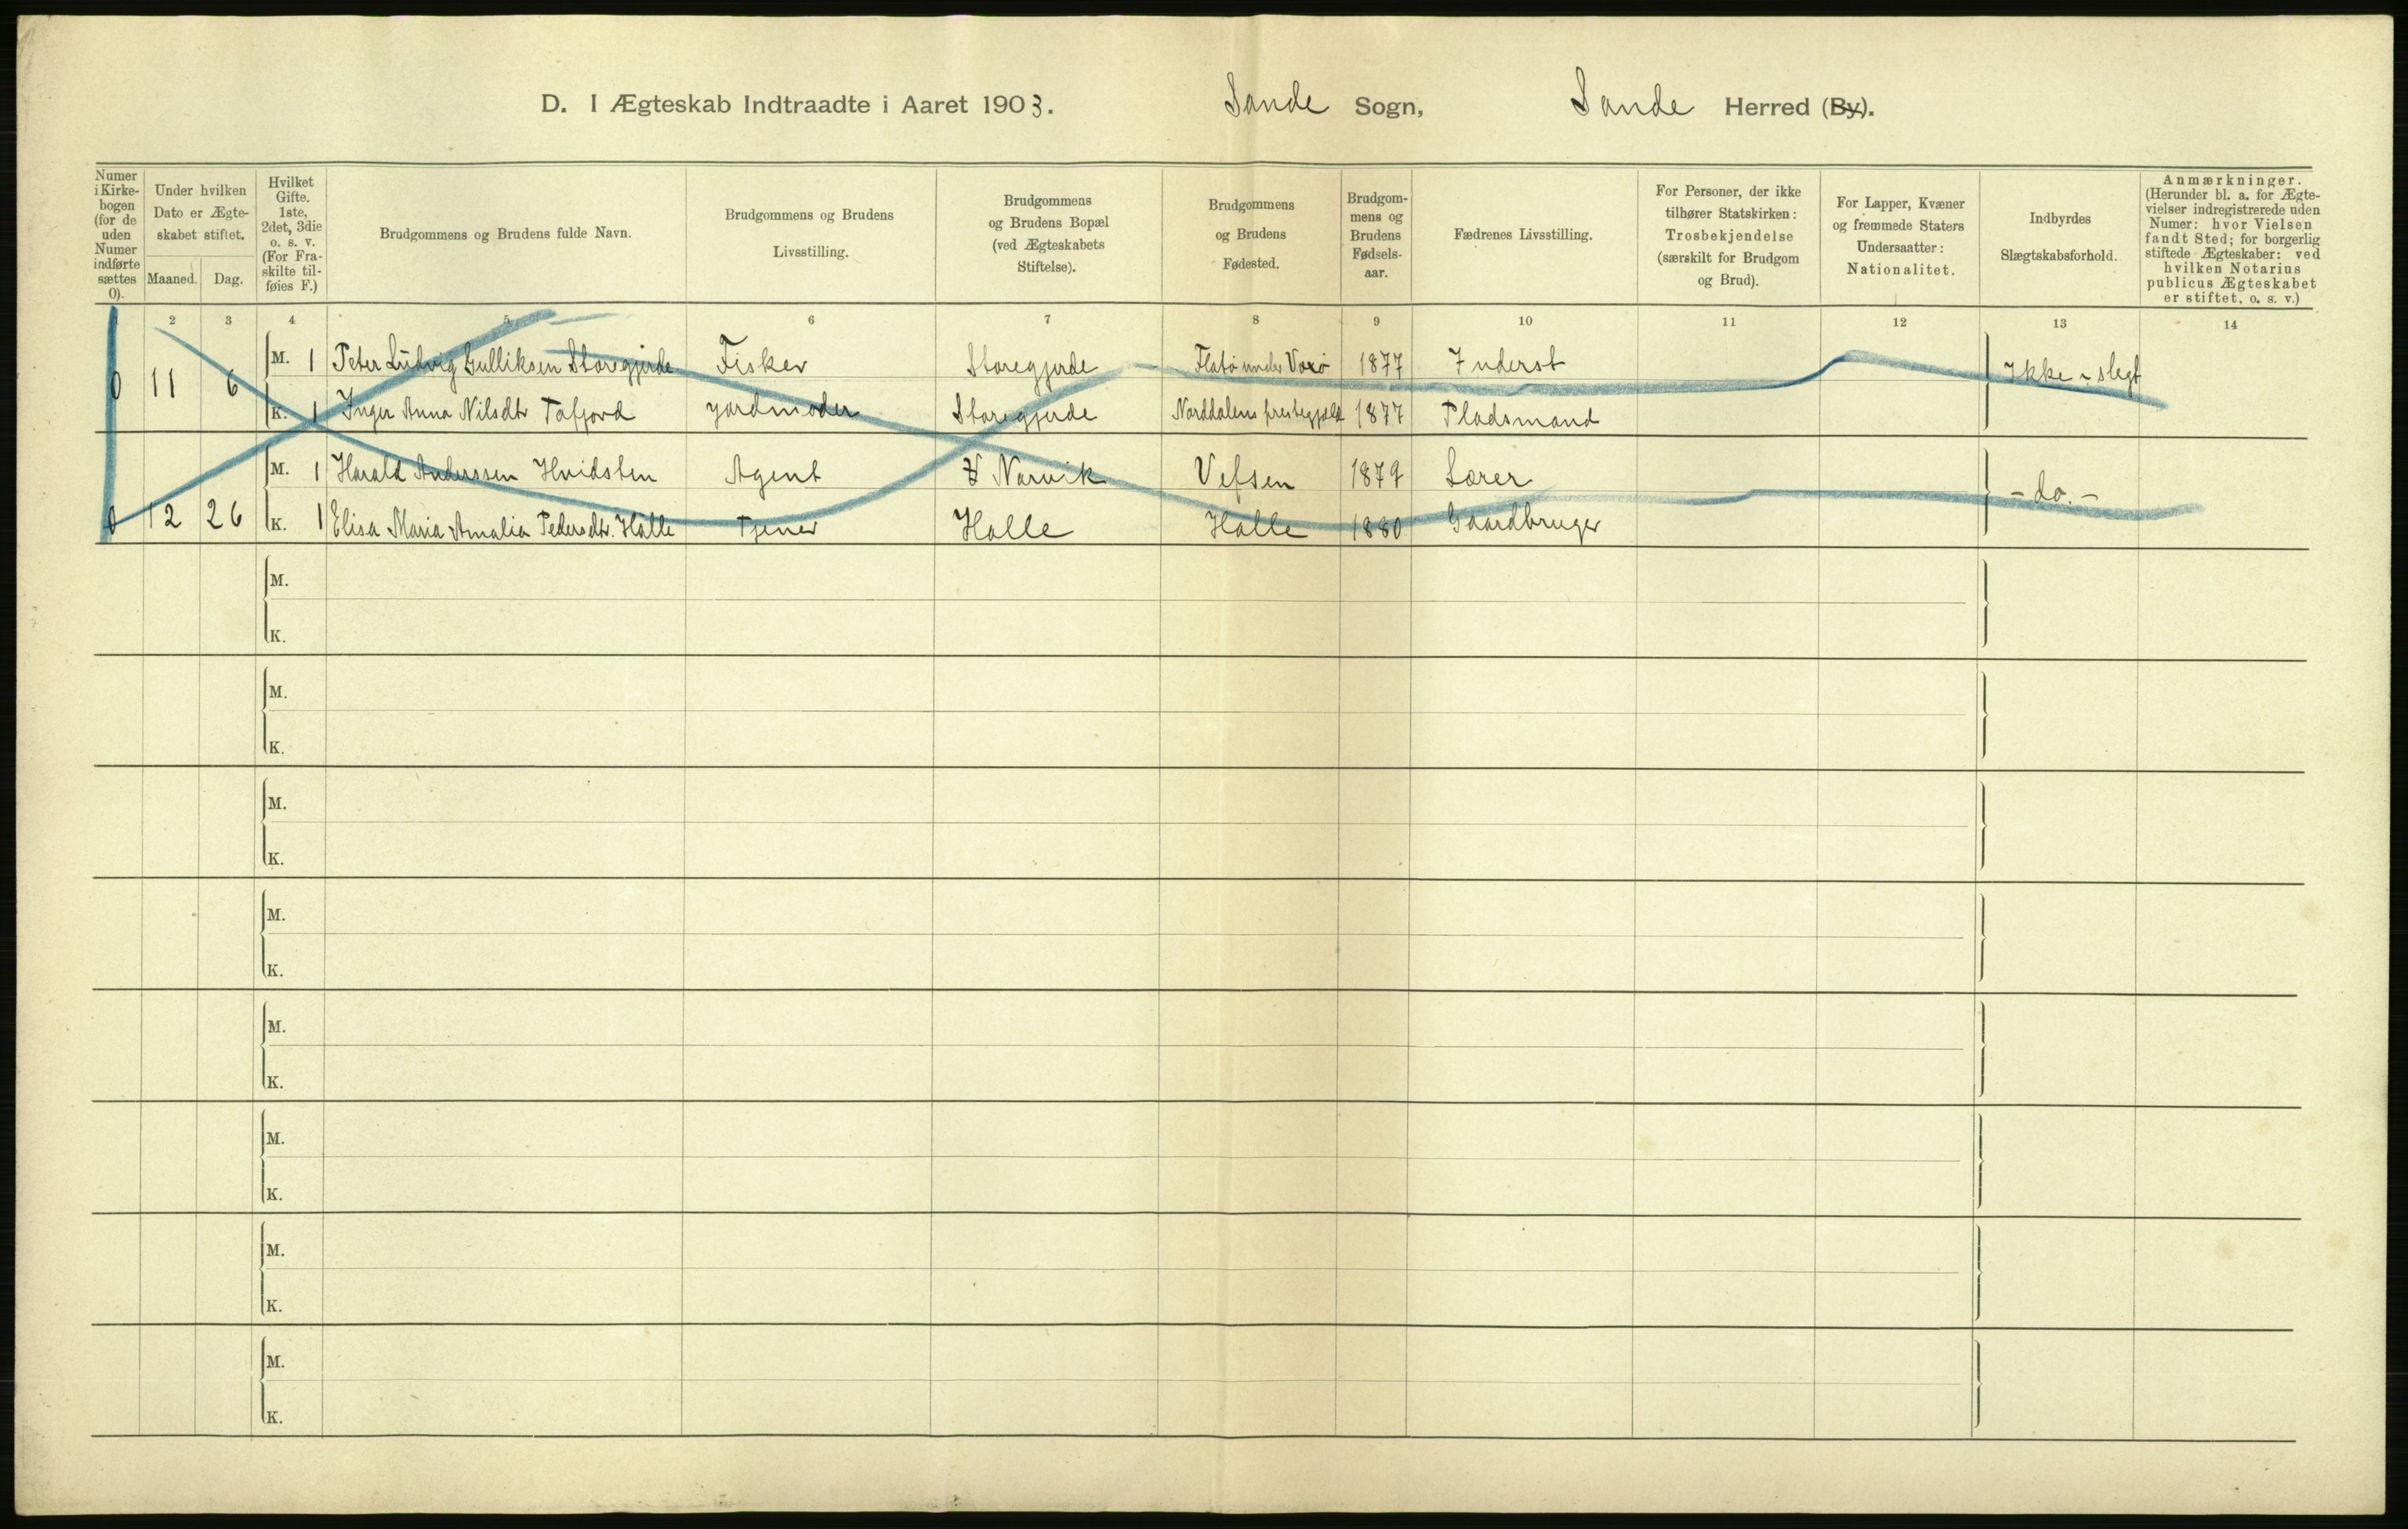 D. I Ægteskab Indtraadte i Aaret 1903. Sande Sogn, Sande Herred (By).
Numer i Kirke-
bogen
(for de
uden
Numer
indførte
sættes
0).
Under hvilken
Dato er Ægte-
skabet stiftet.
Maaned. Dag.
Hvilket
Gifte.
1ste,
2det, 3die
o. s. v.
(For Fra-
skilte til-
føies F.)
Brudgommens og Brudens fulde Navn.
Brudgommens og Brudens
Livsstilling.
Brudgommens
og Brudens Bopæl
(ved Ægteskabets
Stiftelse).
Brudgommens
og Brudens
Fødested.
Brudgom-
mens og
Brudens
Fødsels-
aar.
Fædrenes Livsstilling.
For Personer, der ikke
tilhører Statskirken:
Trosbekjendelse
(særskilt for Brudgom
og Brud).
For Lapper, Kvæner
og fremmede Staters
Undersaatter:
Nationalitet.
Indbyrdes
Slægtskabsforhold.
Anmærkninger.
(Herunder bl. a. for Ægte-
vielser indregistrerede uden
Numer: hvor Vielsen
fandt Sted; for borgerlig
stiftede Ægteskaber: ved
hvilken Notarius
publicus Ægteskabet
er stiftet, o. s. v.)
1 2 3 4 5 6 7 8 9 10 11 12 13 14
0 11 6
M. 1 Peter Ludvig Gulliksen Storegjerde Fisker Storegjerde 1877 Inderst Ikke slegt
K. 1 Inger Anna Nilsdtr Tafjord jordmoder Storegjerde Norddalens prestegjeld 1877 Pladsmand
0 12 26
M. 1 Harald Anderssen Hvidsten Agent Narvik Vefsen 1879 Lærer - do. -
K. 1 Elisa Maria Amalia Pedersdtr. Halle Tjener Halle Halle 1880 Gaardbruger
M.
K.
M.
K.
M.
K.
M.
K.
M.
K.
M.
K.
M.
K.
M.
K.